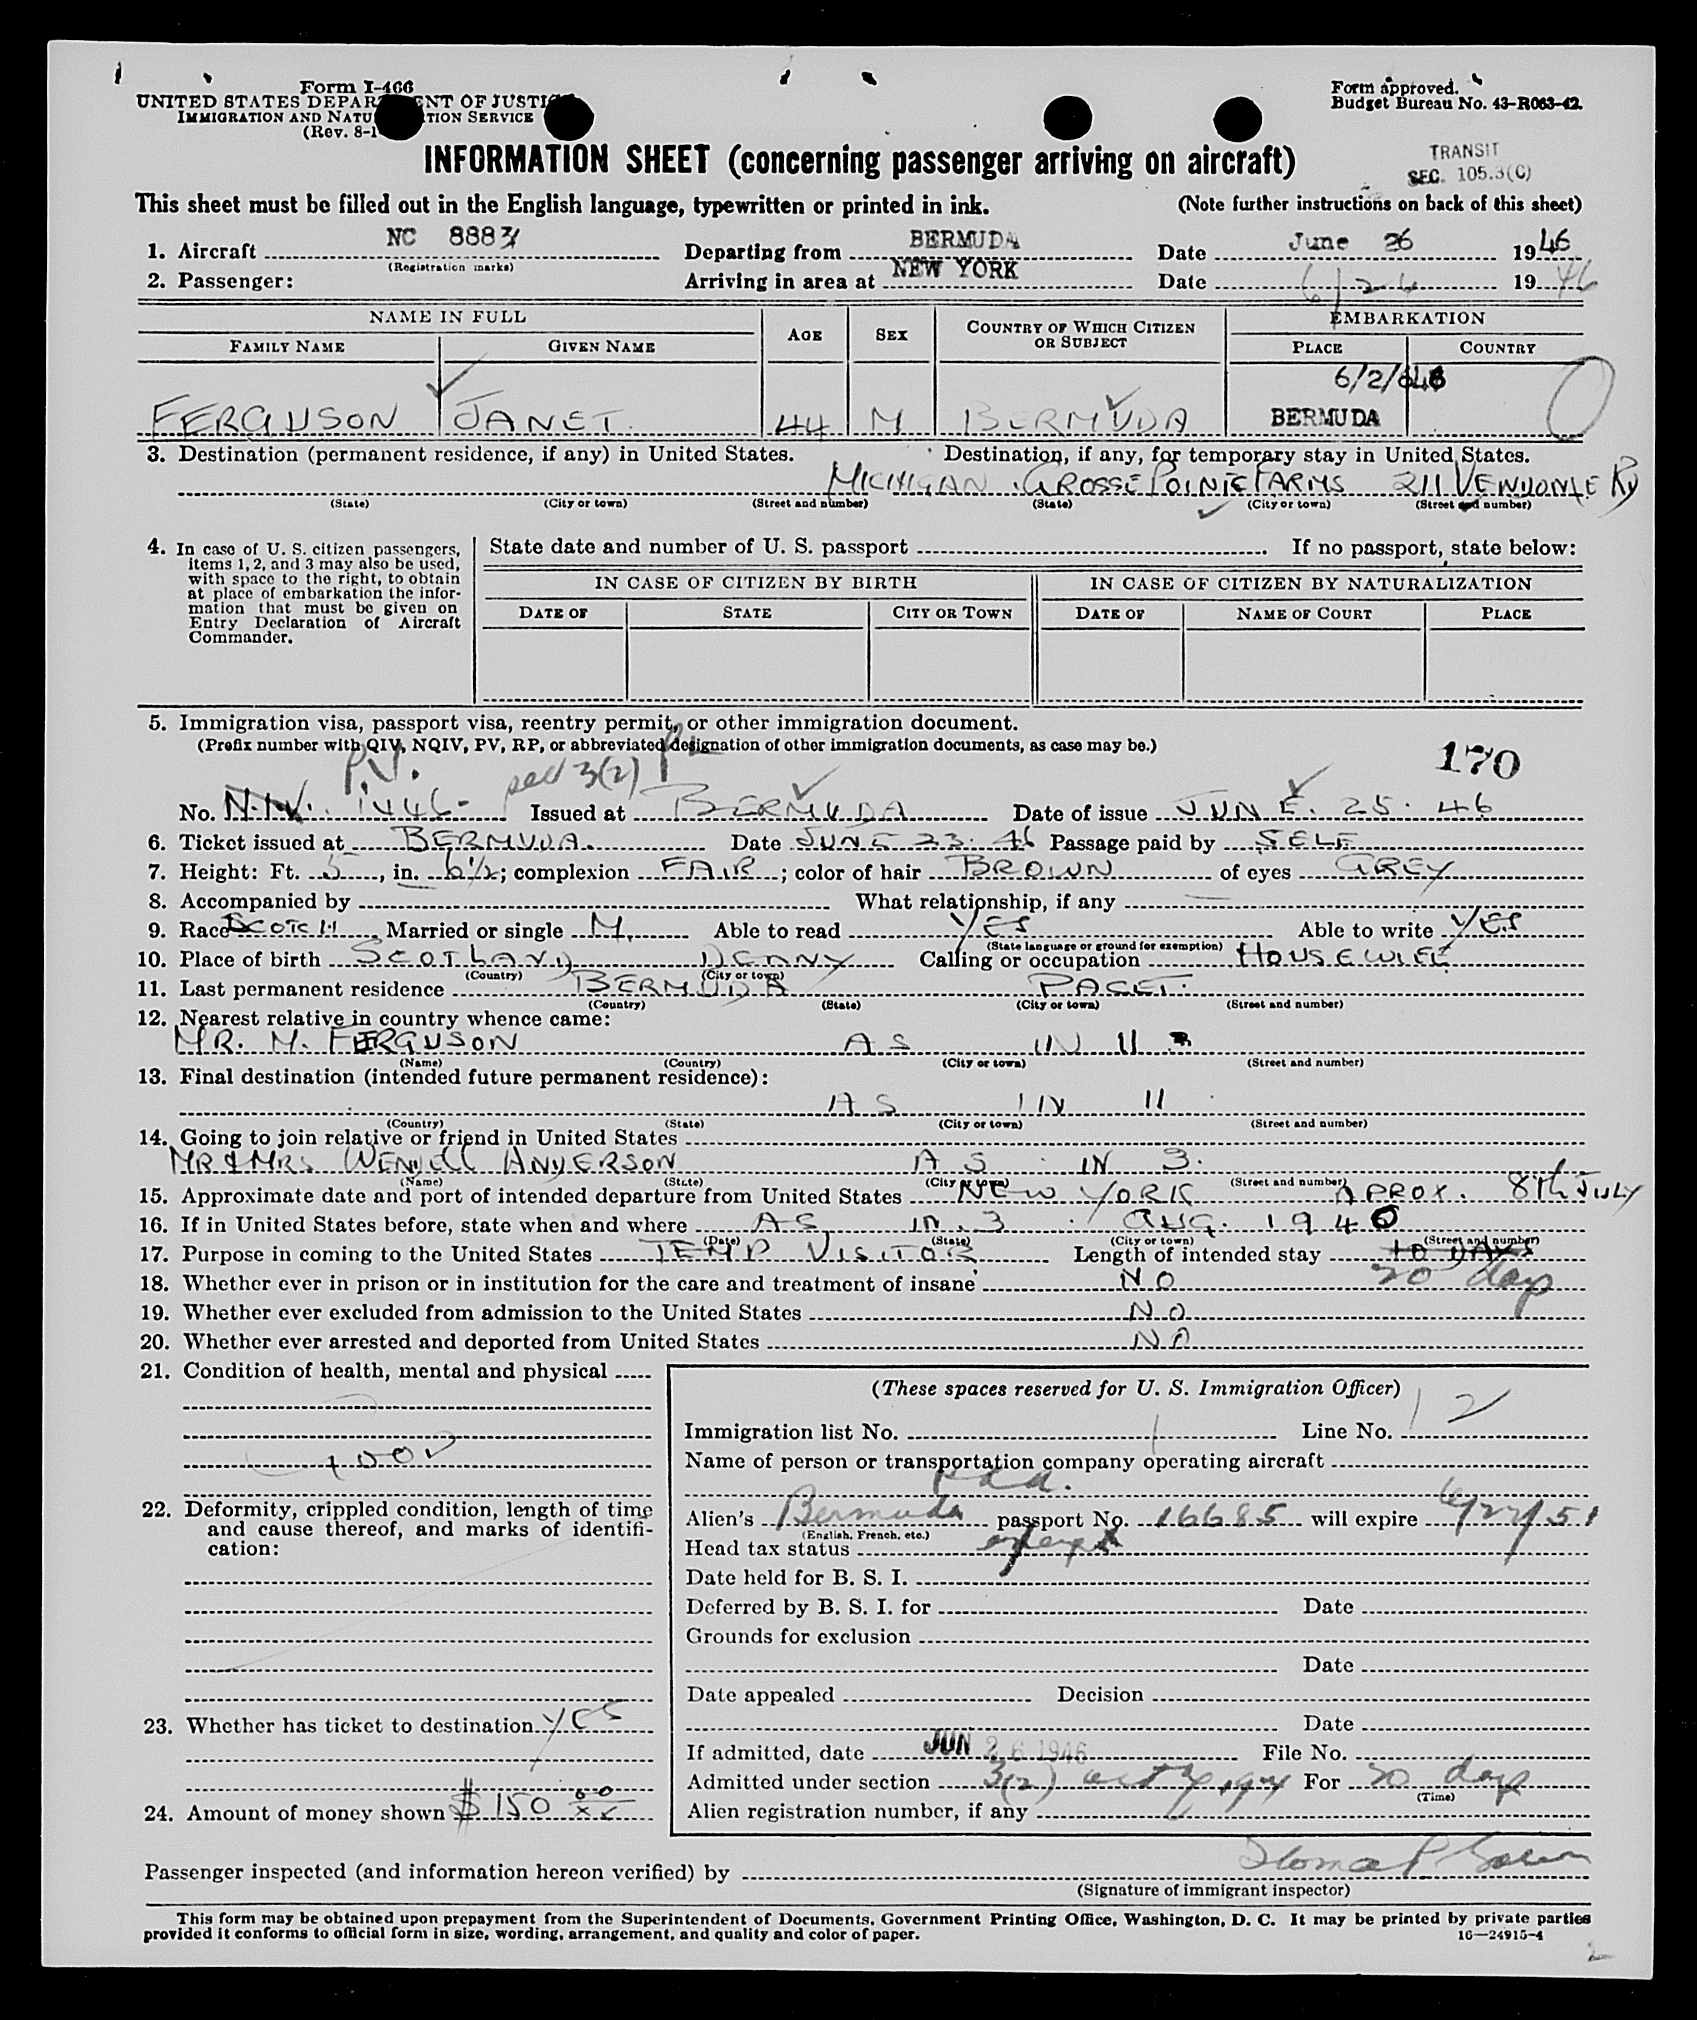 Form I-466
UNITED STATES DEPARTMENT OF JUSTICE
IMMIGRATION AND NATURALIZATION SERVICE
(Rev. 8-1
Form approved.
Budget Bureau No. 43-R063-42.
INFORMATION SHEET (concerning passenger arriving on aircraft)
TRANSIT
SEC. 105.3(C)
This sheet must be filled out in the English language, typewritten or printed in ink. (Note further instructions on back of this sheet)
1. Aircraft NC 8883 Departing from BERMUDA Date June 26 1946
(Registration marks)
2. Passenger: Arriving in area at NEW YORK Date 6/26 1946
NAME IN FULL AGE SEX COUNTRY OF WHICH CITIZEN OR SUBJECT EMBARKATION
FAMILY NAME GIVEN NAME PLACE COUNTRY
6/2/
FERGUSON JANET 44 M BERMUDA BERMUDA
3. Destination (permanent residence, if any) in United States. Destination, if any, for temporary stay in United States.
MICHIGAN GROSSE POINTE FARMS 211
(State) (City or town) (Street and number) (State) (City or town) (Street and number)
4. In case of U. S. citizen passengers, items 1, 2, and 3 may also be used, with space to the right, to obtain at place of embarkation the information that must be given on Entry Declaration of Aircraft Commander.
State date and number of U. S. passport . If no passport, state below:
IN CASE OF CITIZEN BY BIRTH IN CASE OF CITIZEN BY NATURALIZATION
DATE OF STATE CITY OR TOWN DATE OF NAME OF COURT PLACE
5. Immigration visa, passport visa, reentry permit, or other immigration document.
(Prefix number with QIV, NQIV, PV, RP, or abbreviated designation of other immigration documents, as case may be.)
170
P.V. sec 3(2)
No. N.I.V. 1446 Issued at BERMUDA Date of issue JUNE. 25. 46
6. Ticket issued at BERMUDA. Date JUNE 23. 46 Passage paid by SELF
7. Height: Ft. 5, in. 6 1/2; complexion FAIR; color of hair BROWN of eyes GREY
8. Accompanied by What relationship, if any
9. Race SCOTCH, Married or single M. Able to read YES Able to write YES
(State language or ground for exemption)
10. Place of birth SCOTLAND DENNY Calling or occupation HOUSEWIFE
(Country) (City or town)
11. Last permanent residence BERMUDA PAGET.
(Country) (State) (City or town) (Street and number)
12. Nearest relative in country whence came:
MR. M. FERGUSON AS IN 11
(Name) (Country) (City or town) (Street and number)
13. Final destination (intended future permanent residence):
AS IN 11
(Country) (State) (City or town) (Street and number)
14. Going to join relative or friend in United States
MR & MRS WENDELL ANDERSON AS IN 3.
(Name) (State) (City or town) (Street and number)
15. Approximate date and port of intended departure from United States NEW YORK APROX. 8th JULY
16. If in United States before, state when and where AS IN 3 AUG. 1940
(Date) (State) (City or town) (Street and number)
17. Purpose in coming to the United States TEMP VISITOR Length of intended stay 10 DAYS
20 days
18. Whether ever in prison or in institution for the care and treatment of insane NO
19. Whether ever excluded from admission to the United States NO
20. Whether ever arrested and deported from United States NO
21. Condition of health, mental and physical
GOOD
22. Deformity, crippled condition, length of time and cause thereof, and marks of identification:
23. Whether has ticket to destination YES
24. Amount of money shown $150 00/xx
(These spaces reserved for U. S. Immigration Officer)
Immigration list No. 1 Line No. 12
Name of person or transportation company operating aircraft
P a a.
Alien's Bermuda passport No. 16685 will expire 6/27/51
(English, French, etc.)
Head tax status exempt
Date held for B. S. I.
Deferred by B. S. I. for Date
Grounds for exclusion
Date
Date appealed Decision
Date
If admitted, date JUN 26 1946 File No.
Admitted under section 3(2) act of 1924 For 20 days
(Time)
Alien registration number, if any
Passenger inspected (and information hereon verified) by
(Signature of immigrant inspector)
This form may be obtained upon prepayment from the Superintendent of Documents, Government Printing Office, Washington, D. C. It may be printed by private parties
provided it conforms to official form in size, wording, arrangement, and quality and color of paper.
16—24915-4
2